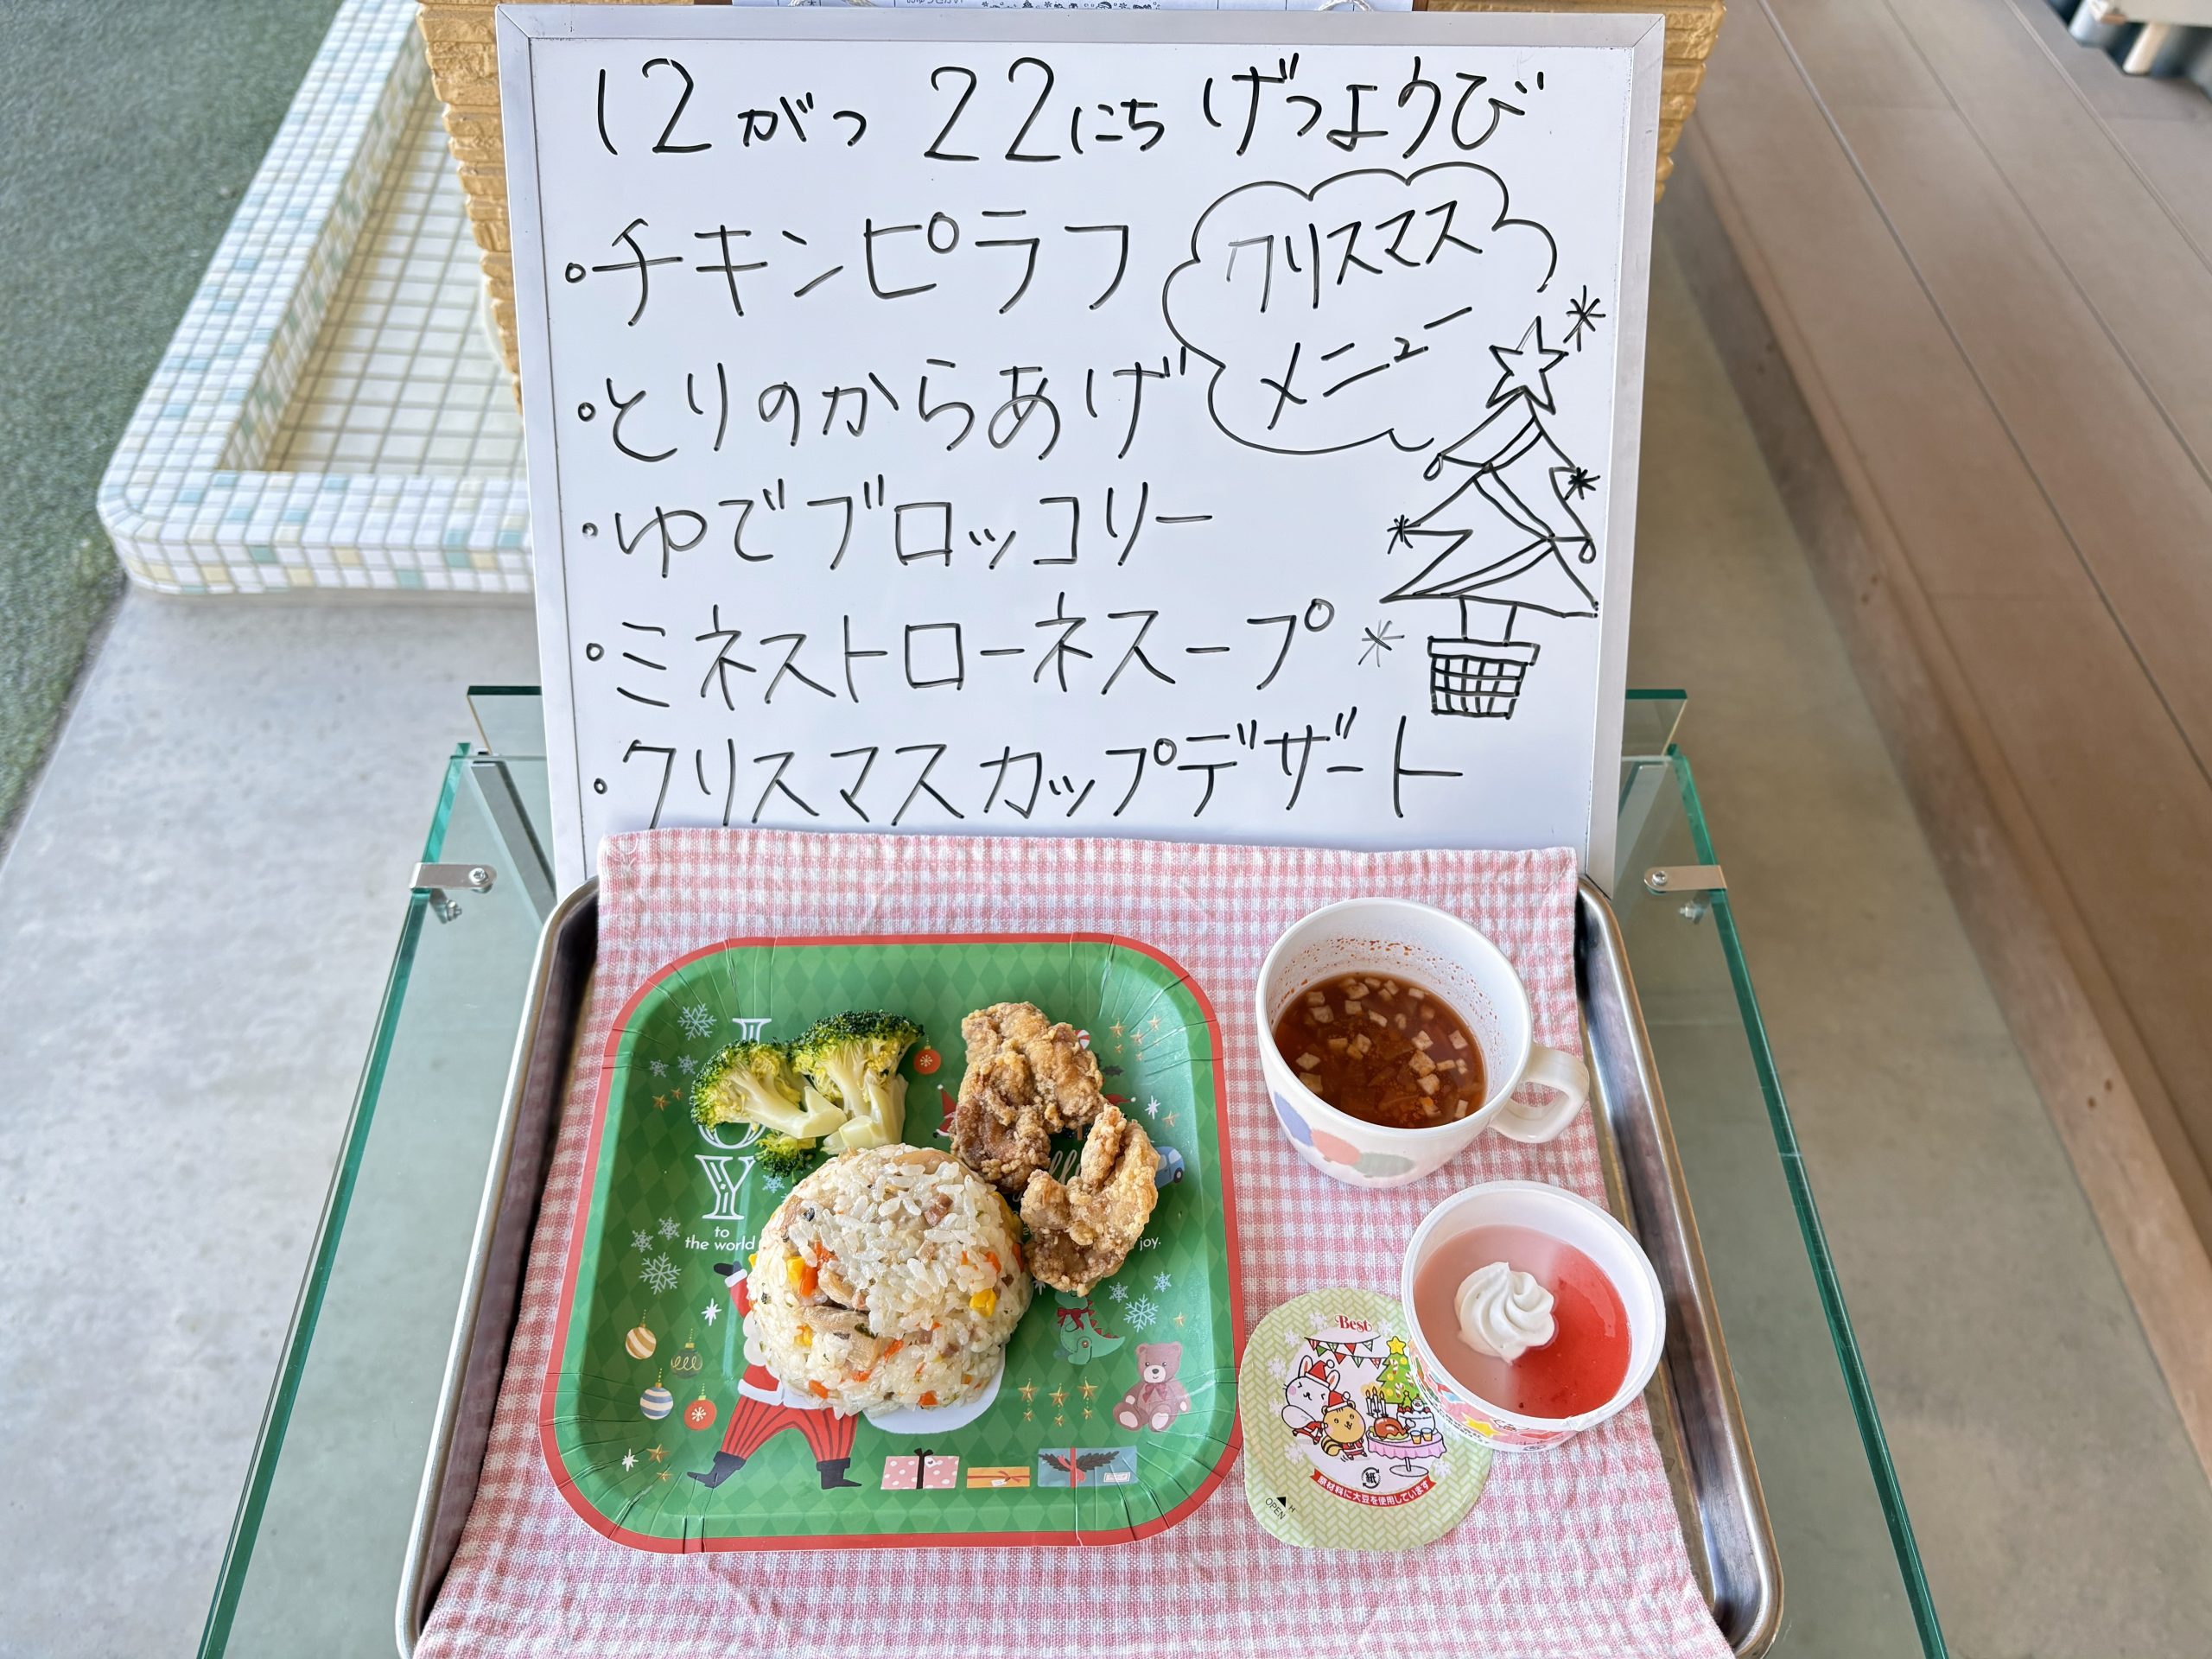 12がつ 22にち げつようび
クリスマス
メニュー
・チキンピラフ
・とりのからあげ
・ゆでブロッコリー
・ミネストローネスープ
・クリスマスカップデザート
J
O
Y
to
the world
joy.
Best
紙
原材料に大豆を使用しています
OPEN